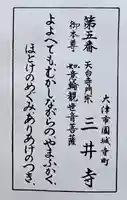 大津市園城寺町
第五番 天台寺門宗 三井寺
御本尊 如意輪観世音菩薩
よよへてもむかしながらのやまふかく、
ほとけのめぐみありあけのつき、